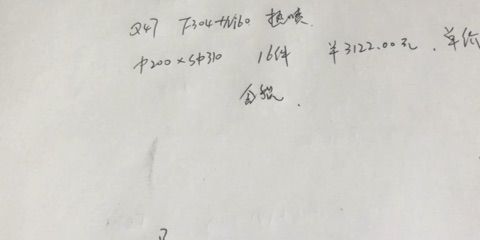 Q47 F304+Ni60 热喷
Φ200×SΦ310 16件 ¥3122.00元. 单价
含税.